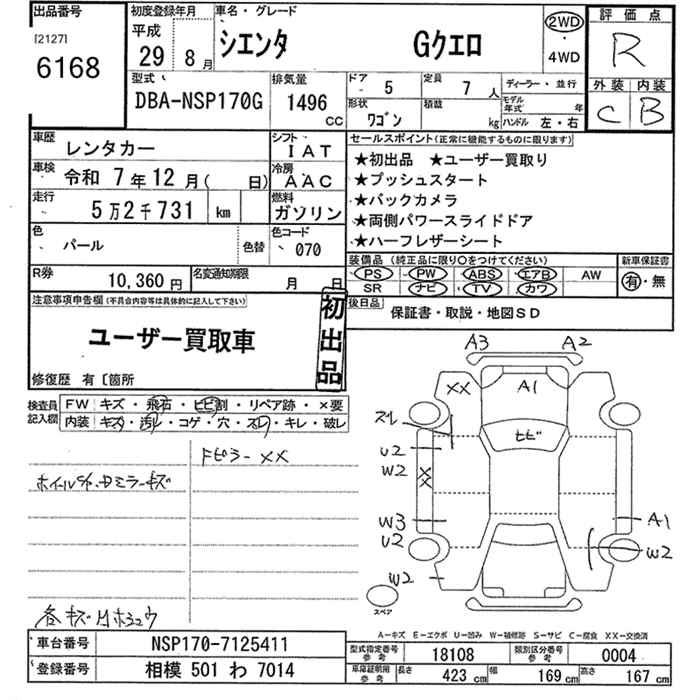 出品番号
[2127]
6168
初度登録年月
平成
29 8月
車名・グレード
シエンタ Gクエロ
2WD
・
4WD
評価点
R
外装 内装
C B
型式
DBA-NSP170G
排気量
1496
CC
ドア
5
定員
7 人
形状
ワゴン
積載
kg
ディーラー・並行
モデル年式 年
ハンドル 左・右
車歴
レンタカー
シフト
IAT
車検
令和 7年12月( 日)
冷房
AAC
走行
5万2千731 km
燃料
ガソリン
色
パール
色替
色コード
070
R券
10,360円
名変通知期限
月 日
セールスポイント(正常に機能するものに限ります)
★初出品 ★ユーザー買取り
★プッシュスタート
★バックカメラ
★両側パワースライドドア
★ハーフレザーシート
装備品(純正品に限り○をつけてください)
PS PW ABS エアB AW
SR ナビ TV カワ
新車保証書
有・無
後日品
保証書・取説・地図SD
注意事項申告欄(不具合内容等は具体的に記入して下さい)
ユーザー買取車
初出品
修復歴 有〔箇所
検査員記入欄
FW キズ・飛石・ヒビ割・リペア跡・×要
内装 キズ・汚レ・コゲ・穴・スレ・キレ・破レ
ドピラーXX
A3 A2
XX A1
スレ
ヒビ
U2
W2
XX
W3
A1
U2
W2
W2
スペア
A-キズ E-エクボ U-凹み W-補修跡 S-サビ C-腐食 XX-交換済
車台番号
NSP170-7125411
登録番号
相模 501 わ 7014
型式指定番号
参考
18108
類別区分番号
参考
0004
車庫証明用
参考
長さ 423 cm
幅 169 cm
高さ 167 cm